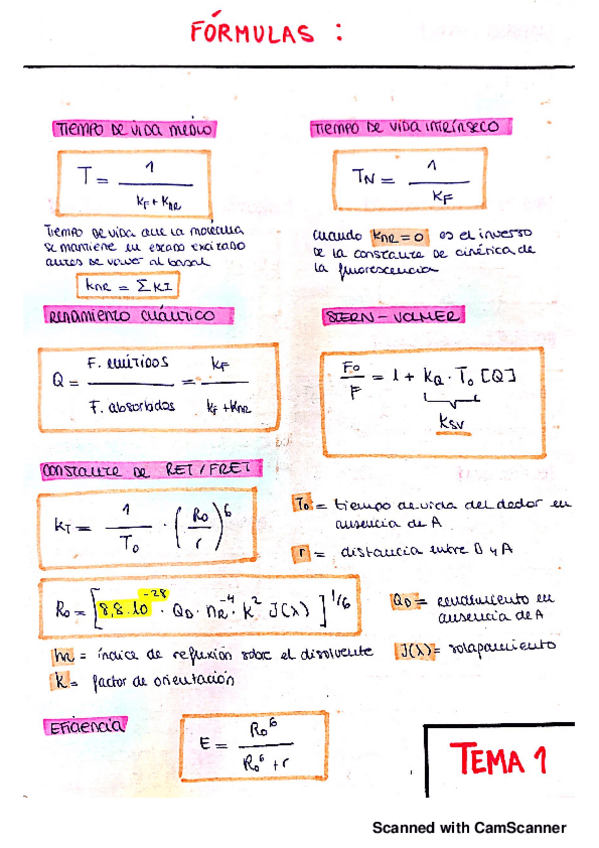 FÓRMULAS :
TIEMPO DE VIDA MEDIO
T = 1 / kF + kNR
TIEMPO DE VIDA QUE LA MOLÉCULA
SE MANTIENE EN ESTADO EXCITADO
ANTES DE VOLVER AL BASAL
kNR = Σ KI
TIEMPO DE VIDA INTRÍNSECO
TN = 1 / kF
CUANDO kNR = 0 ES EL INVERSO
DE LA CONSTANTE DE CINÉTICA DE
LA FLUORESCENCIA
RENDIMIENTO CUÁNTICO
Q = F. EMITIDOS / F. absorbidos = kF / kF + kNR
STERN - VOLMER
F0 / F = 1 + kQ · T0 [Q]
KSV
CONSTANTE DE RET / FRET
kT = 1 / T0 · (R0 / r)^6
T0 = tiempo de vida del dador en
ausencia de A
r = distancia entre D y A
R0 = [8,8.10^-28 · QD · nR^-4 · k^2 J(λ) ]^1/6
QD = rendimiento en
ausencia de A
J(λ) = solapamiento
= índice de reflexión sobre el disolvente
k = factor de orientación
EFICIENCIA
E = R0^6 / R0^6 + r
TEMA 1
Scanned with CamScanner